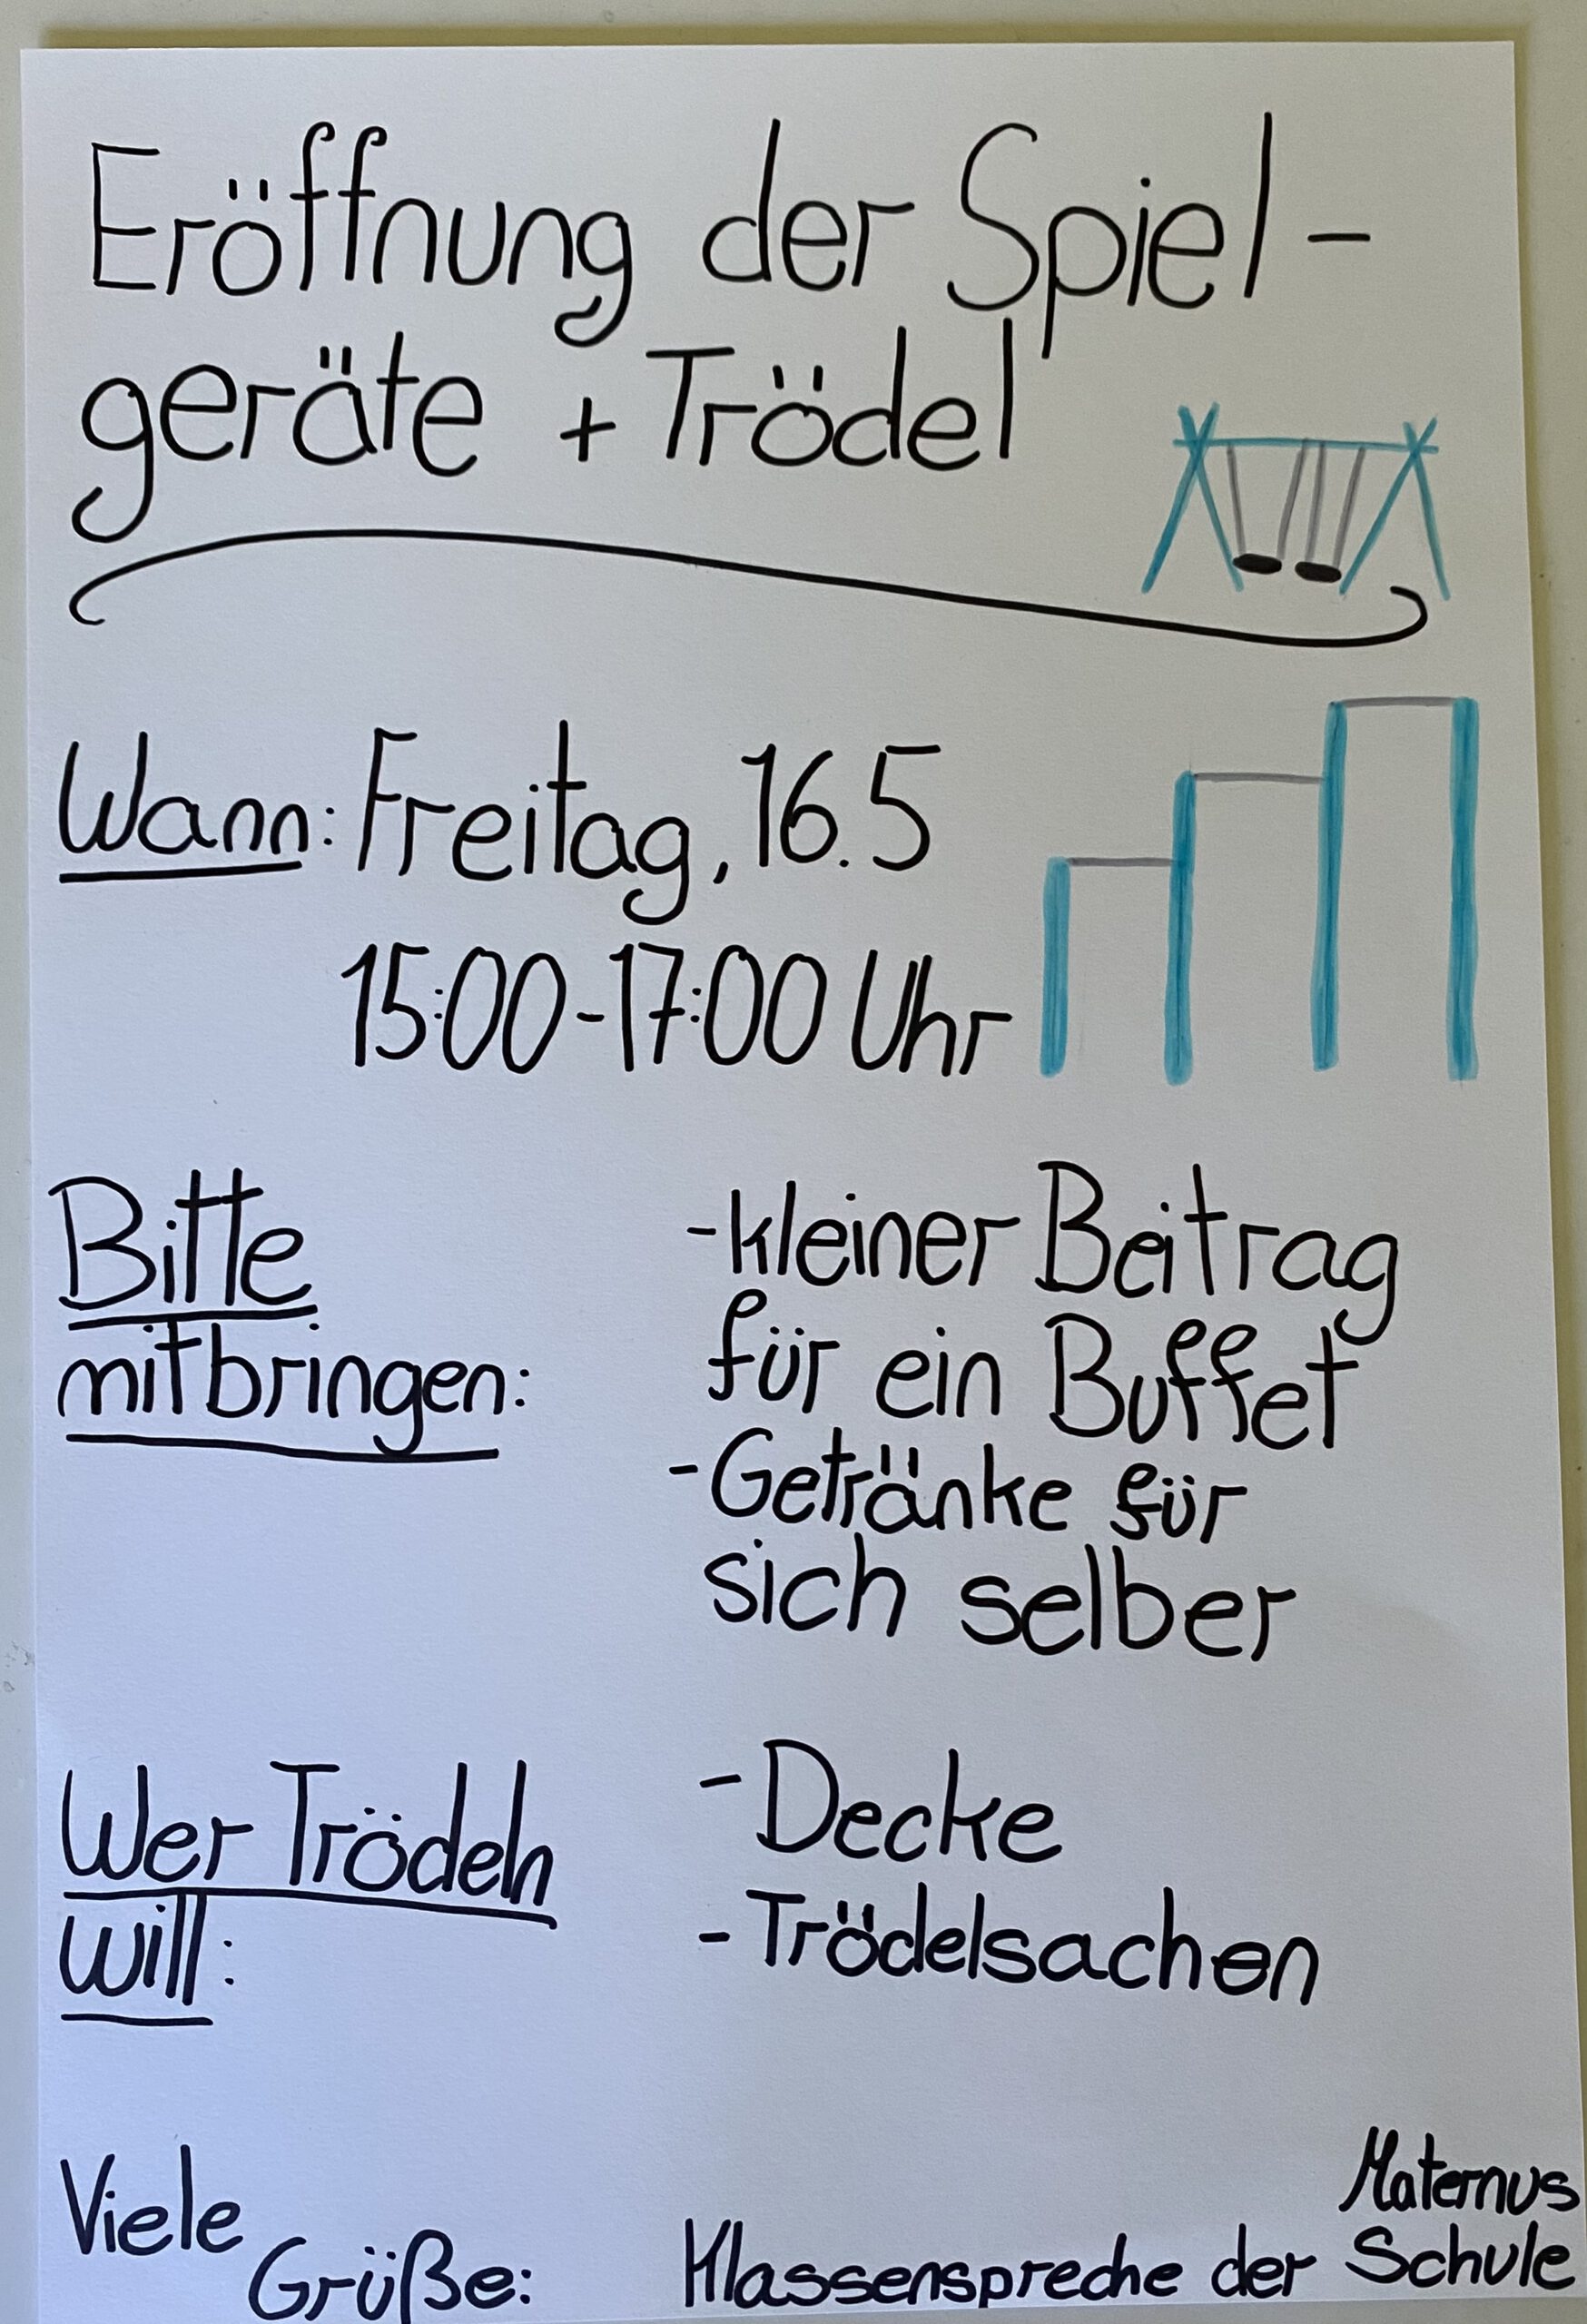 Eröffnung der Spiel-
geräte + Trödel
Wann: Freitag, 16.5
15:00-17:00 Uhr
Bitte
mitbringen:
-kleiner Beitrag
für ein Buffet
-Getränke für
sich selber
Wer Trödeln
will:
- Decke
- Trödelsachen
Viele
Grüße:
Klassenspreche der
Maternus
Schule